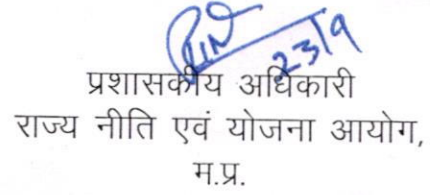 23/9
प्रशासकीय अधिकारी
राज्य नीति एवं योजना आयोग,
म.प्र.